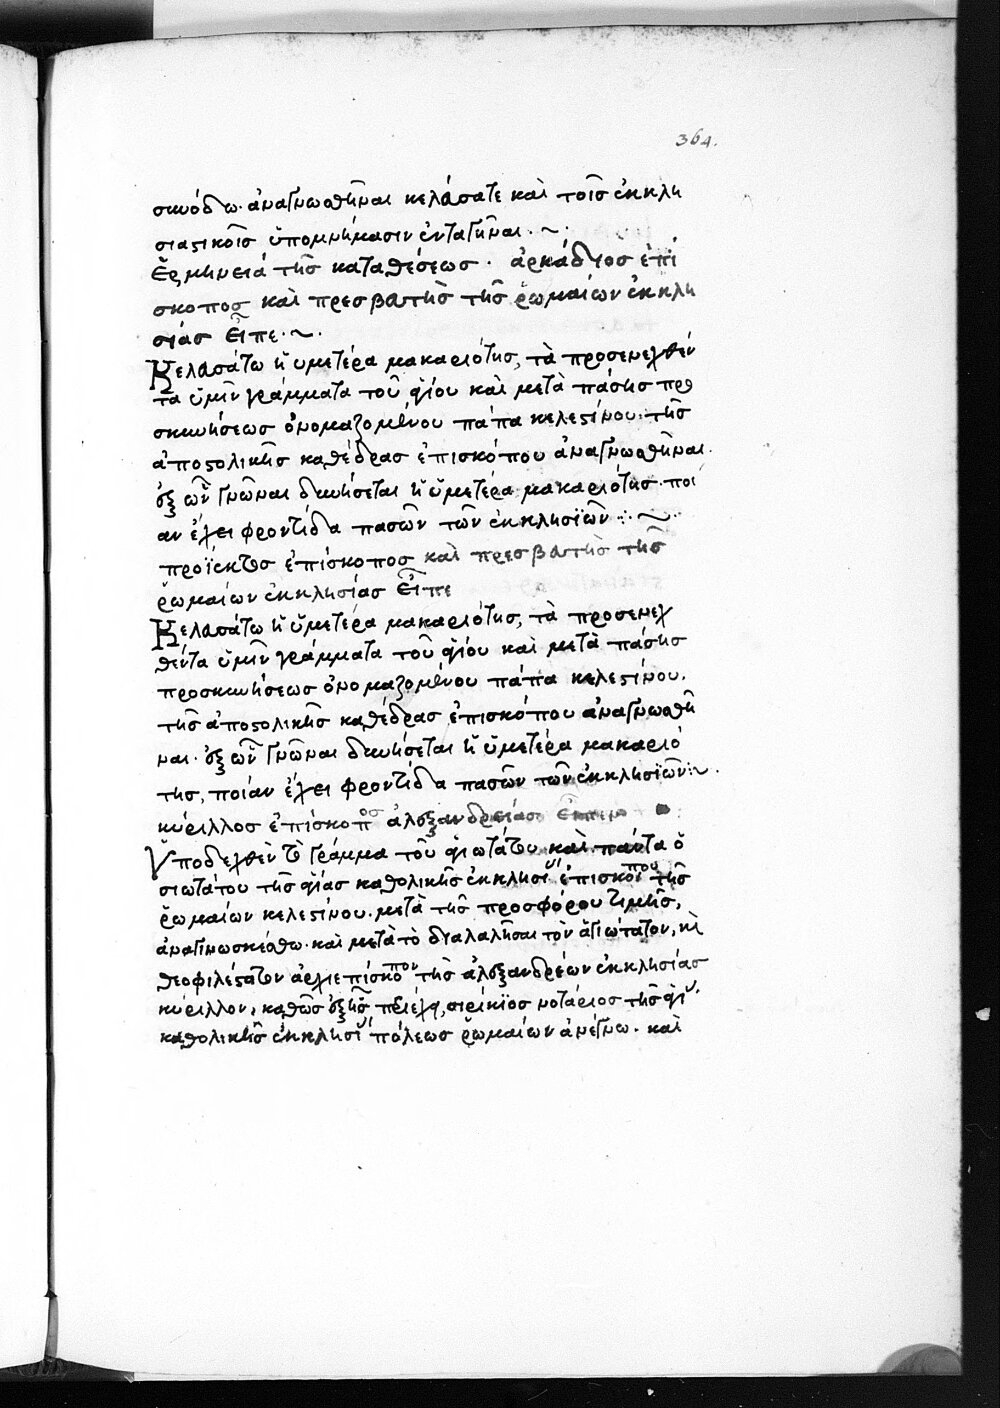 364.
συνόδω· ἀναγνωσθῆναι κελεύσατε καὶ τοῖς ἐκκλη
σιαστικοῖς ὑπομνήμασιν ἐνταγῆναι·~·
Ἑρμηνεία τῆς καταθέσεως· ἀρκάδιος ἐπί
σκοπος καὶ πρεσβευτὴς τῆς ῥωμαίων ἐκκλη
σίας εἶπε·~·
Κελευσάτω ἡ ὑμετέρα μακαριότης, τὰ προσενεχθέν
τα ὑμῖν γράμματα τοῦ ἁγίου καὶ μετὰ πάσης προ
σκυνήσεως ὀνομαζομένου πάπα κελεστίνου· τῆς
ἀποστολικῆς καθέδρας ἐπισκόπου ἀναγνωσθῆναι·
ἐξ ὧν γνῶναι δυνήσεται ἡ ὑμετέρα μακαριότης· ποί
αν ἔχει φροντίδα πασῶν τῶν ἐκκλησϊῶν·:~
προΐεκτος ἐπίσκοπος καὶ πρεσβευτὴς τῆς
ῥωμαίων ἐκκλησίας εἶπε
Κελευσάτω ἡ ὑμετέρα μακαριότης, τὰ προσενεχ
θέντα ὑμῖν γράμματα τοῦ ἁγίου καὶ μετὰ πάσης
προσκυνήσεως ὀνομαζομένου πάπα κελεστίνου.
τῆς ἀποστολικῆς καθέδρας ἐπισκόπου ἀναγνωσθῆ
ναι· ἐξ ὧν γνῶναι δυνήσεται ἡ ὑμετέρα μακαριό
της, ποίαν ἔχει φροντίδα πασῶν τῶν ἐκκλησϊῶν:~.
κύριλλος ἐπίσκοπος ἀλεξανδρείας εἶπεν
Ὑποδεχθὲν τὸ γράμμα τοῦ ἁγιωτάτου καὶ πάντα ὁ
σιωτάτου τῆς ἁγίας καθολικῆς ἐκκλησι ἐπισκόπου τῆς
ῥωμαίων κελεστίνου· μετὰ τῆς προσφόρου τιμῆς,
ἀναγινωσκέσθω· καὶ μετὰ τὸ διαλαλῆσαι τὸν ἁγιώτατον, κὶ
θεοφιλέστατον ἀρχιεπίσκοπον τῆς ἀλεξανδρέων ἐκκλησίας
κύριλλον, καθὼς ἑξῆς περιέχει, σιρίκϊος νοτάριος τῆς ἁγι
καθολικῆς ἐκκλησι πόλεως ῥωμαίων ἀνέγνω· καὶ